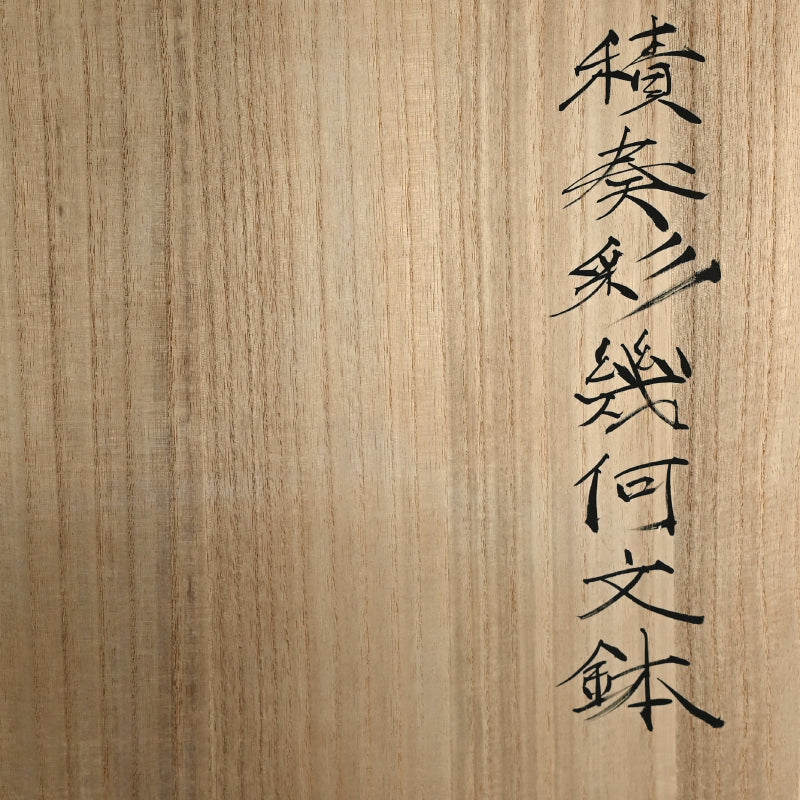 積奏彩幾何文鉢